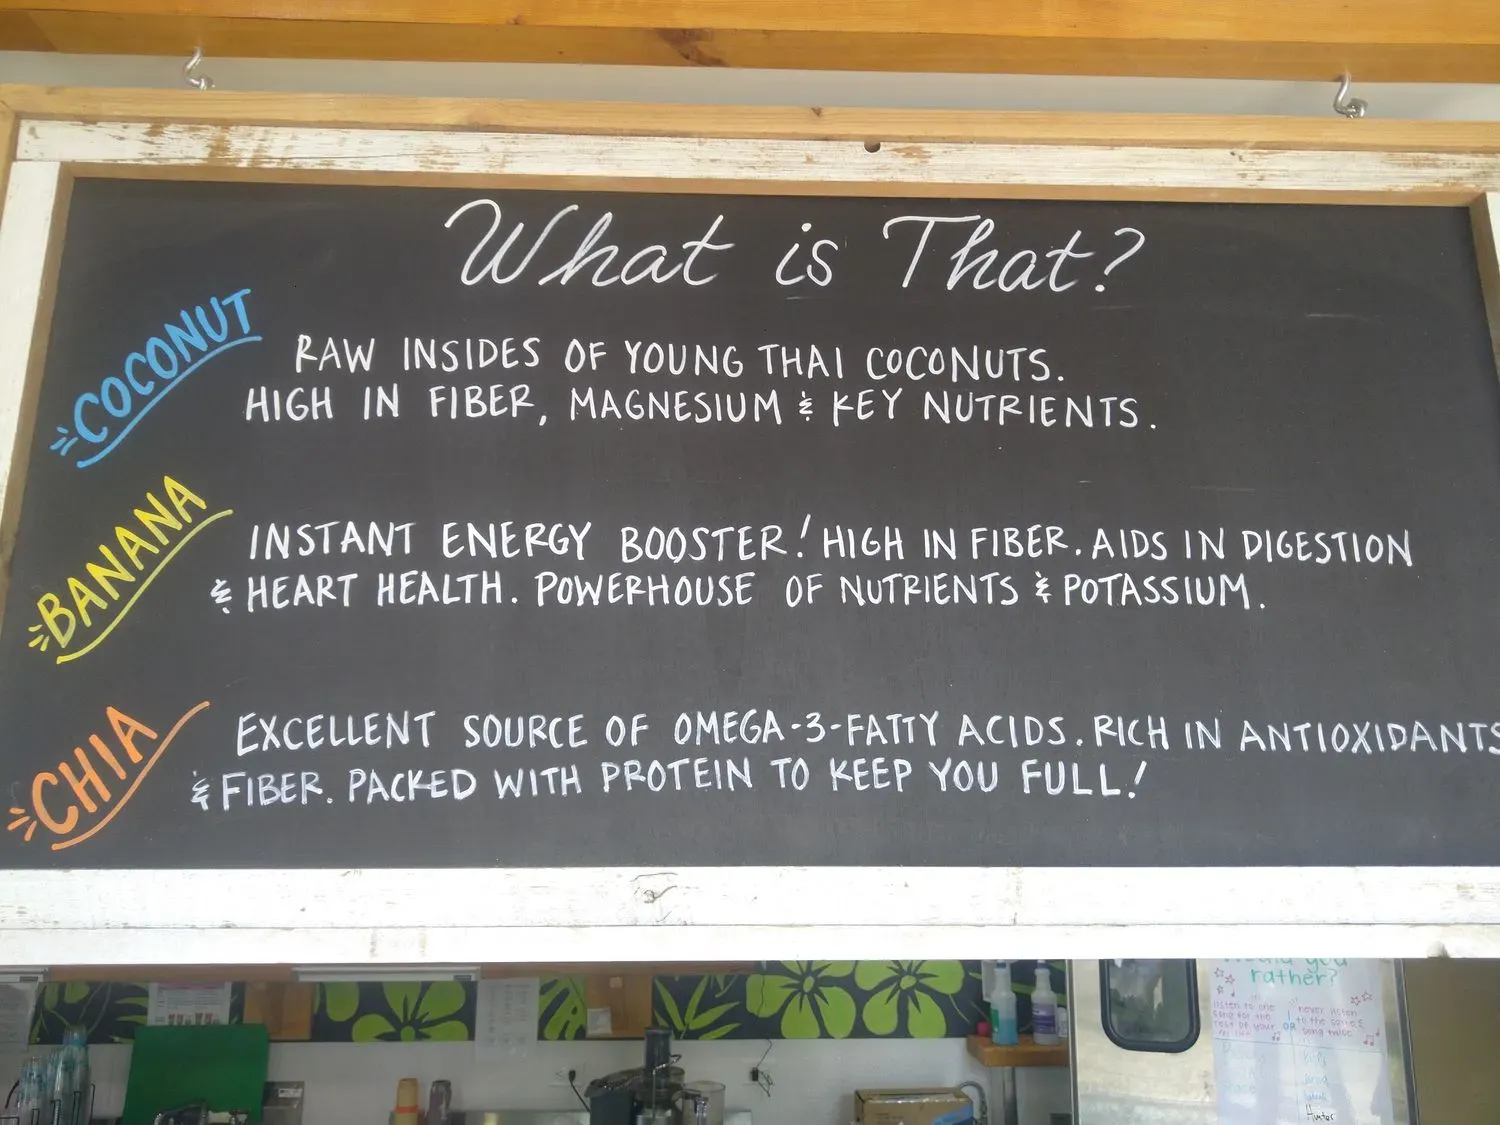 What is That?
COCONUT
RAW INSIDES OF YOUNG THAI COCONUTS.
HIGH IN FIBER, MAGNESIUM & KEY NUTRIENTS.
BANANA
INSTANT ENERGY BOOSTER! HIGH IN FIBER. AIDS IN DIGESTION
& HEART HEALTH. POWERHOUSE OF NUTRIENTS & POTASSIUM.
CHIA
EXCELLENT SOURCE OF OMEGA-3-FATTY ACIDS. RICH IN ANTIOXIDANTS
& FIBER. PACKED WITH PROTEIN TO KEEP YOU FULL!
would you
rather?
listen to one
song for the
rest of your
OR
never listen
to the same
song twice
Hunter